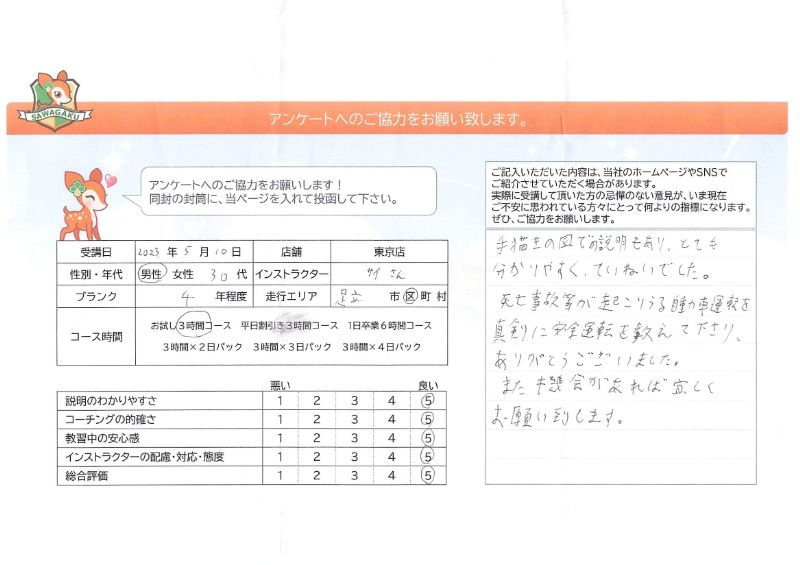 SAWAGAKU
アンケートへのご協力をお願い致します。
アンケートへのご協力をお願いします！
同封の封筒に、当ページを入れて投函して下さい。
受講日 2023 年 5 月 10 日 店舗 東京店
性別・年代 男性 女性 30 代 インストラクター サイ さん
ブランク 4 年程度 走行エリア 足立 市 区 町 村
コース時間 お試し3時間コース 平日割引き3時間コース 1日卒業6時間コース
3時間×2日パック 3時間×3日パック 3時間×4日パック
悪い 良い
説明のわかりやすさ 1 2 3 4 5
コーチングの的確さ 1 2 3 4 5
教習中の安心感 1 2 3 4 5
インストラクターの配慮・対応・態度 1 2 3 4 5
総合評価 1 2 3 4 5
ご記入いただいた内容は、当社のホームページやSNSで
ご紹介させていただく場合があります。
実際に受講して頂いた方の忌憚のない意見が、いま現在
ご不安に思われている方々にとって何よりの指標になります。
ぜひ、ご協力をお願いします。
手描きの図でお説明もあり、とても
分かりやすく、ていねいでした。
死亡事故等が起こりうる自動車運転を
真剣に安全運転を教えて下さり、
ありがとうございました。
また機会があれば宜しく
お願い致します。